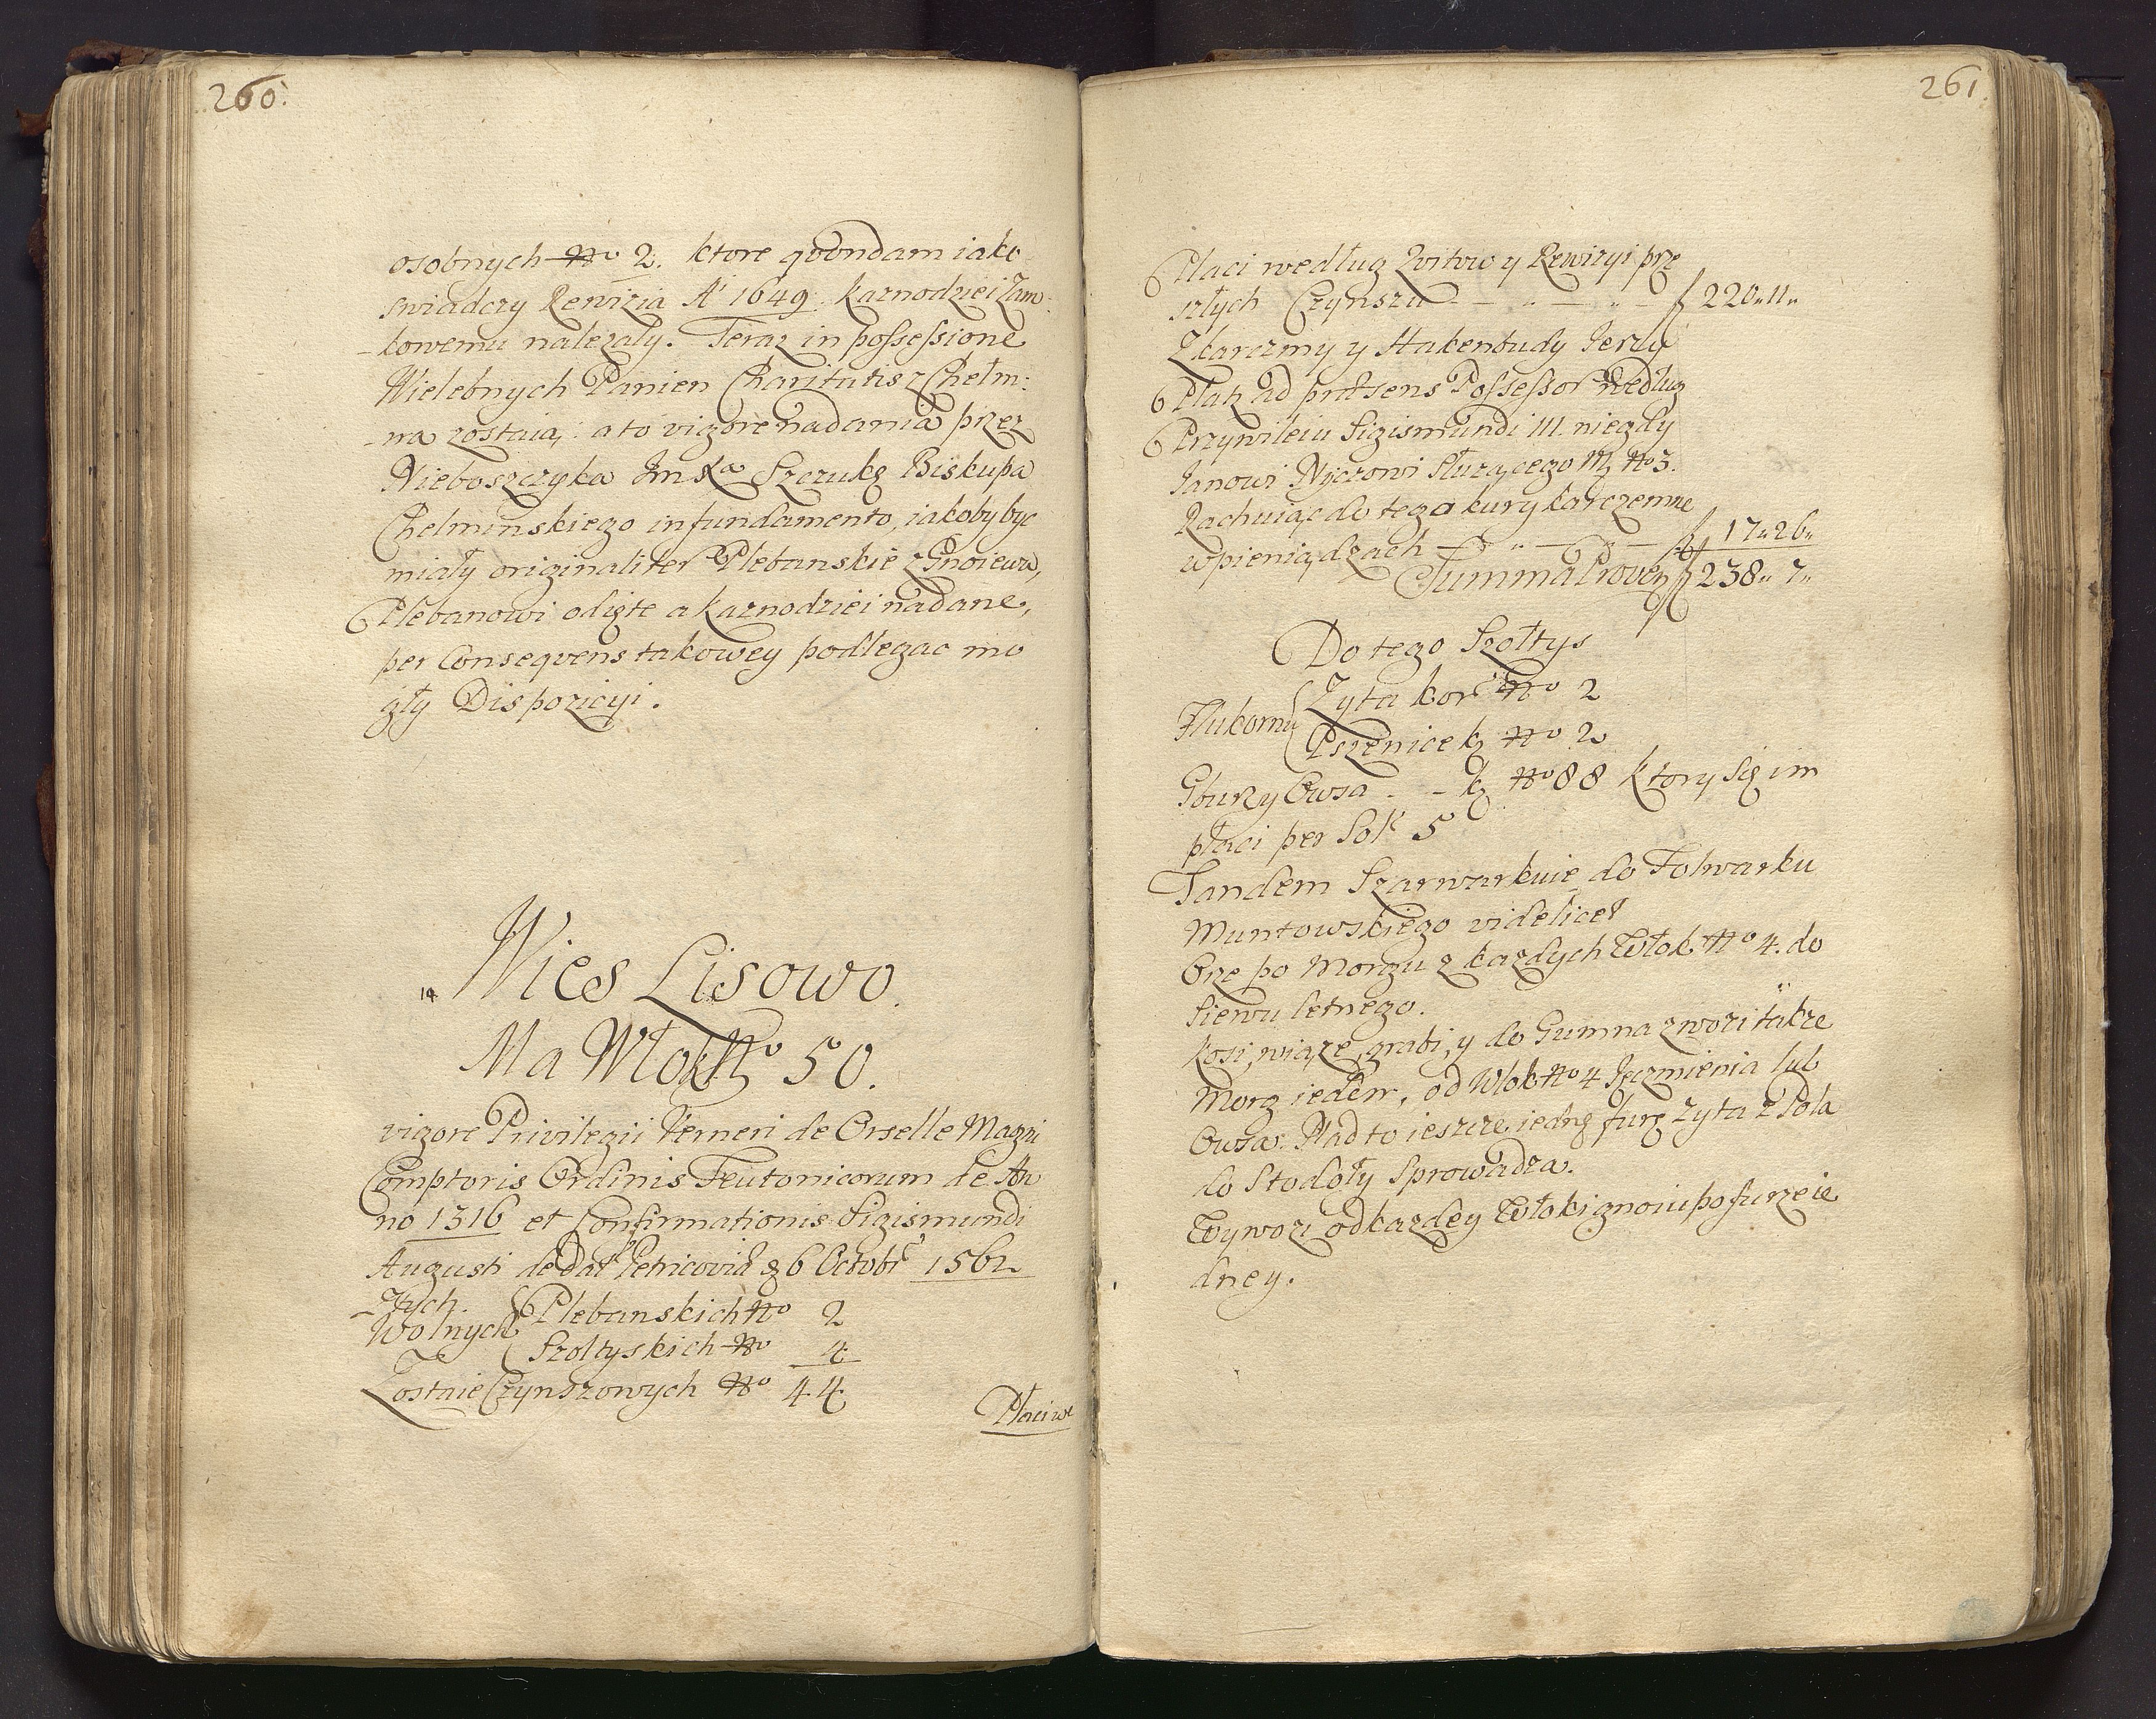 260.
osobnych No 2. ktore qvondam iako
swiadczy Rewizia Aº 1649. Kaznodziei Zam-
-kowemu nalezały. Teraz in possessione
Wielebnych Panien Charitatis z Chełm:
-na zostaią, a to vigore nadania przez
Nieboszczyka Szczukę Biskupa
Chełminskiego in fundamento, iakoby byc
miały originaliter Plebanskie z Gnoiewa,
Plebanowi odięte a Kaznodziei nadane,
per Consequens takowey podlegac mo
gły Dispozicyi.
14 Wies Lisowo.
Ma Włok No 50.
vigore Privilegii Verneri de Orselle Magni
Comptoris Ordinis Teutonicorum de An
no 1316 et Confirmationis Sigismundi
Augusti de Dat Petricoviæ 6 Octobr 1562
-Tych.
Wolnych Plebanskich No 2
Szoltyskich No 4
Zostaie Czynszowych No 44
Płaci we
261.
Płaci według Kwitow y Rewizyi prze
szłych Czynszu - - - f 220 „ 11 „
Z karczmy y Hakenbudy Jerzy
Platz ad præsens Possessor według
Przywileiu Sigismundi III. niegdy
Janowi Nyczowi słuzącego No 3.
Rachuiąc do tego kury karczemne
w pieniądzach - - - f 17 „ 26 „
Summa Proven f 238 „ 7 „
Do tego Szołtys
Płukornu Zyta kor No 2
Pszenice k No 2
Gburzy Owsa - - k No 88 ktory się im
płaci per Sol 5
Tandem Szarwarkuie do Folwarku
Muntowskiego videlicet
Orze po Morgu z kazdych Włok No 4. do
Siewu letnego.
Kosi, wiąze, grabi, y do Gumna zwozi takze
Morg ieden, od Włok No 4 Jęczmienia lub
Owsa. Nad to ieszcze iednę furę Zyta z Pola
do Stodoły Sprowadza.
Wywozi od kazdey Włoki gnoiu po furze ie
dney.